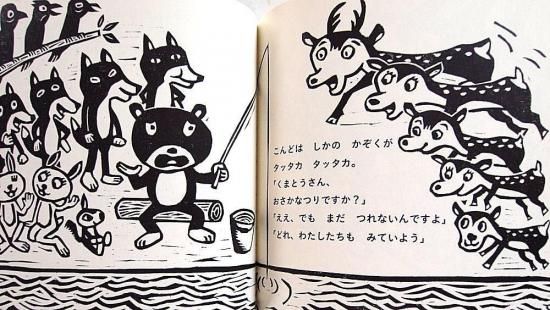 こんどは しかの かぞくが
タッタカ タッタカ。
「くまとうさん、
おさかなつりですか？」
「ええ、でも まだ つれないんですよ」
「どれ、わたしたちも みていよう」